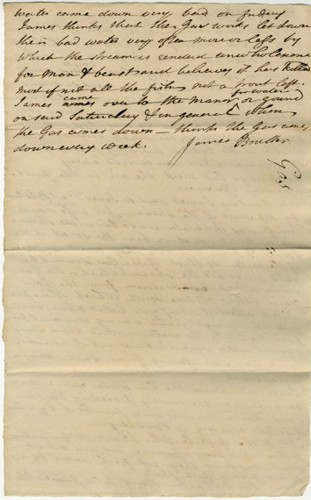 water came down very bad on Friday
James thinks that the Gas works let down
their bad water very often more or less by
which the stream is rendered unwholesome
for man & beast and believes it has killed
most if not all the fish not a trout left
James came over to the Manor for water
on said Saturday & in general when
the Gas comes down – thinks the Gas comes
down every week.
James
Gas